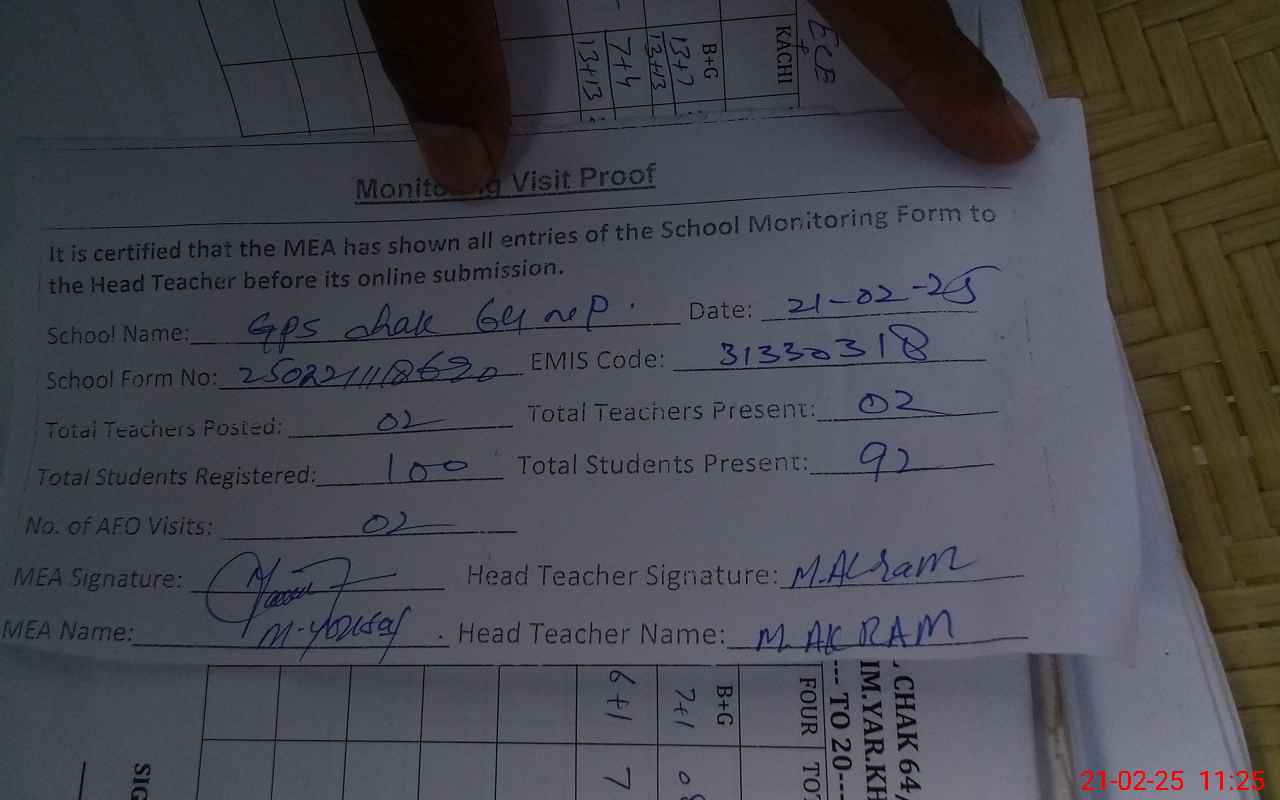 ECE
KACHI
B+G
13+7
13+13
7+4
13+13
Monitoring Visit Proof
It is certified that the MEA has shown all entries of the School Monitoring Form to
the Head Teacher before its online submission.
School Name: GPS chak 64 NP. Date: 21-02-25
School Form No: EMIS Code: 31330318
Total Teachers Posted: 02 Total Teachers Present: 02
Total Students Registered: 100 Total Students Present: 92
No. of AFO Visits: 02
MEA Signature: Head Teacher Signature: M.Akram
MEA Name: M-Yousaf . Head Teacher Name: M. AKRAM
CHAK 64,
IM.YAR.KH
--- TO 20---
FOUR TOT
B+G
7+1
6+1 7
SIG
21-02-25 11:25